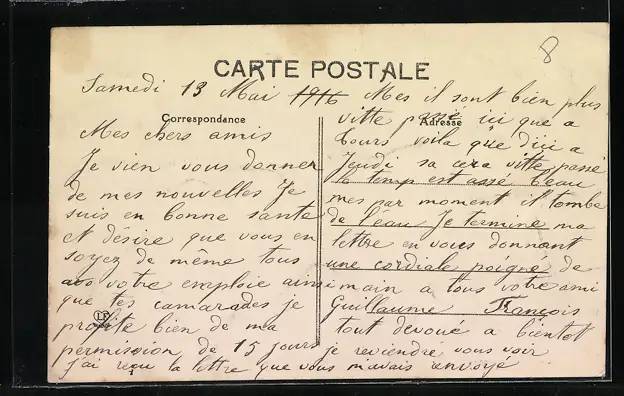 8
CARTE POSTALE
Samedi 13 Mai 1916
Correspondance
Mes chers amis
Je vien vous donner
de mes nouvelles Je
suis en bonne sante
et désire que vous en
soyez de même tous
votre emploie ainsi
que tes camarades je
profite bien de ma
permission de 15 jours
j'ai reçu la lettre que vous m'aviais renvoyé
Mes il sont bien plus
vitte passé ici que a
Adresse
Tours voila que d'ici a
Jeudi sa cera vitte passé
le temp est assé beau
mes par moment il tombe
de l'eau Je termine ma
lettre en vous donnant
une cordiale poigné de
main a tous votre ami
Guillaume François
tout devoué a bientot
je reviendré vous voir
LF